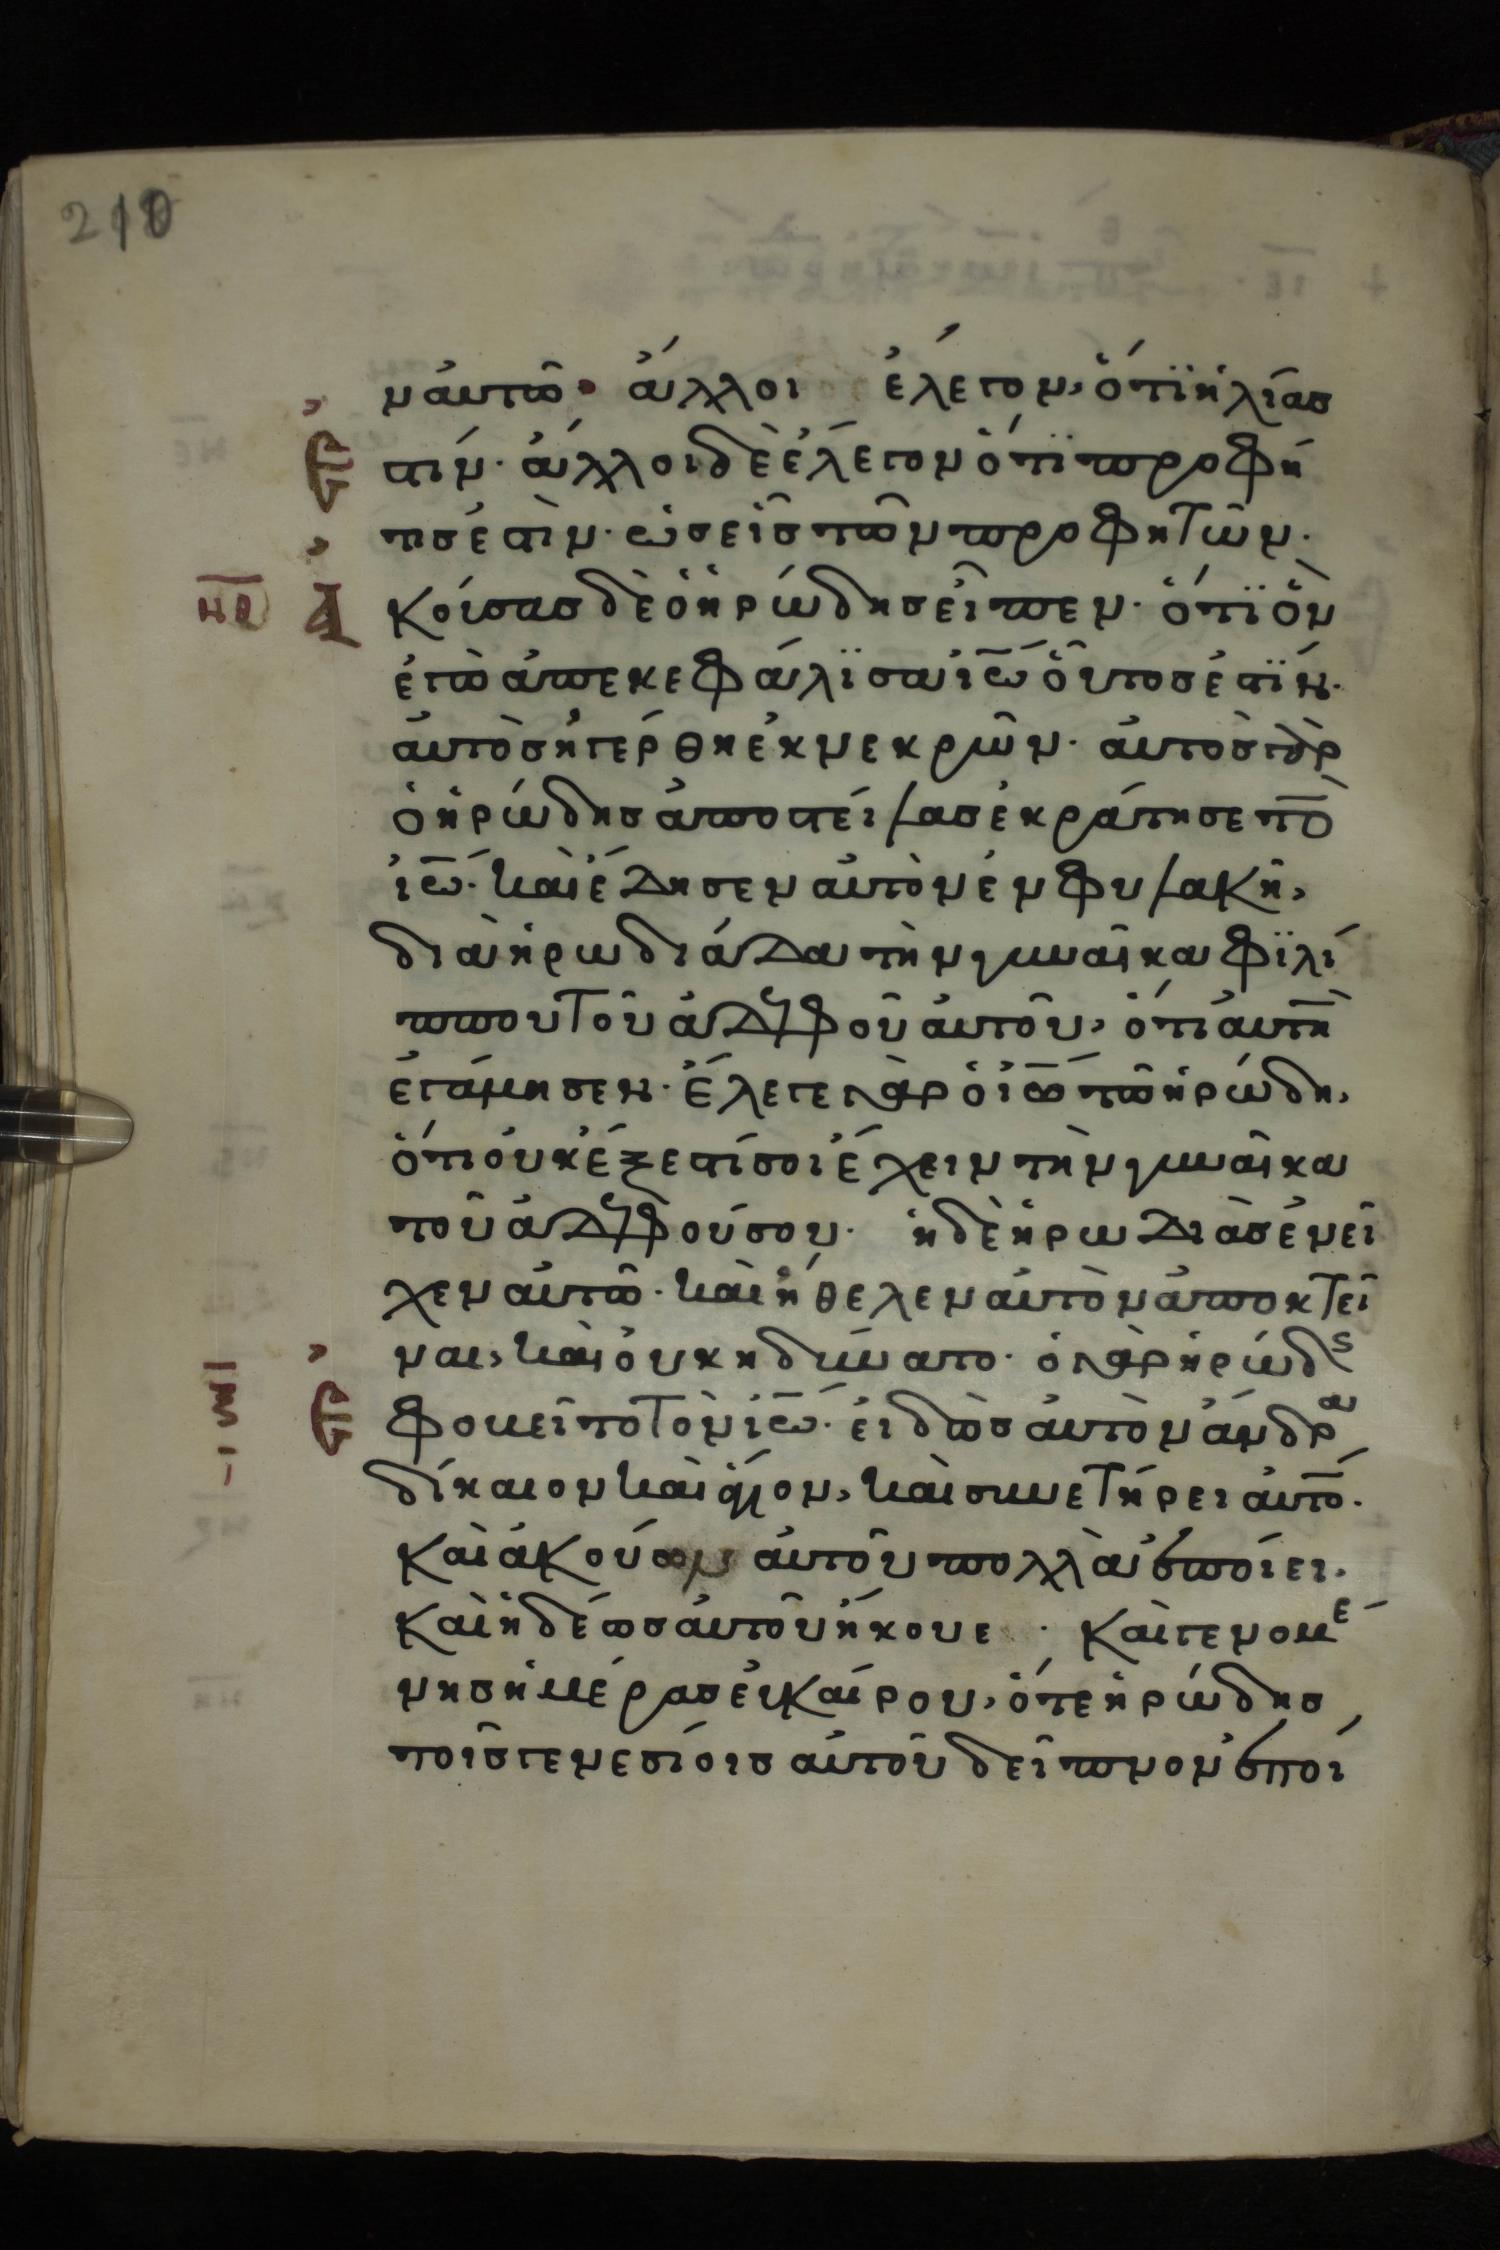 210
ν ἀυτῶ· ἄλλοι ἔλεγον, ὅτϊ ἡλίας
ἐστίν· ἄλλοι δὲ ἔλεγον ὅτϊ προφή
της ἐστὶν· ὡς εἷς τῶν προφητῶν·
νδ Ἀκούσας δὲ ὁ ἡρώδης εἶπεν· ὅτϊ ὃν
ἐγὼ ἀπεκεφάλϊσα ἰω̅ οὗτος ἐστϊν·
ἀυτὸς ἠγέρθη ἐκ νεκρῶν· ἀυτὸς γὰρ
ὁ ἡρώδης ἀποστείλας ἐκράτησε τὸ̅
ἰω̅· καὶ ἔδησεν ἀυτὸν ἐν φυλακῆ,
διὰ ἡρωδιάδα τὴν γυναῖκα φϊλί
ππου τοῦ ἀδελφοῦ ἀυτοῦ, ὅτι ἀυτὴ̅
ἐγάμησεν· ἔλεγε γὰρ ὁ ἰω̅ τῶ ἡρώδη,
ὅτι οὐκ ἔξεστί σοι ἔχειν τὴν γυναῖκα
τοῦ ἀδελφού σου· ἡ δὲ ἡρωδιὰς ἐνεῖ
χεν ἀυτῶ· καὶ ἤθελεν ἀυτὸν ἀποκτεῖ
ναι, καὶ οὐκ ηδύνατο· ὁ γὰρ ἡρώδς
ἐφοβεῖτο τὸν ἰω̅· εἰδὼς ἀυτὸν ἄνδρα
δίκαιον καὶ ἅγιον, καὶ συνετήρει ἀυτό̅·
καὶ ἀκούων ἀυτοῦ πολλὰ ἐποίει·
καὶ ἡδέως ἀυτοῦ ἤκουε · καὶ γενομέ
νης ἡμέρας ἐυκαίρου, ὅτε ἡρώδης
τοῖς γενεσίοις ἀυτοῦ δεῖπνον ἐποί